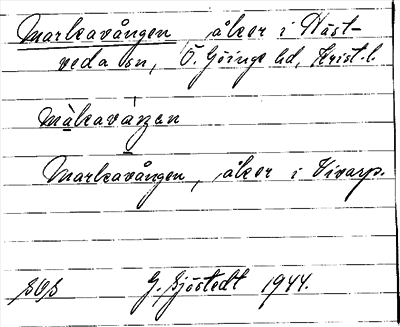 Markavången, åker i Häst-
veda sn, Ö. Göinge hd, Krist. l.
màkavàŋen
Markavången, åker i Vivarp.
G. Sjöstedt 1944.